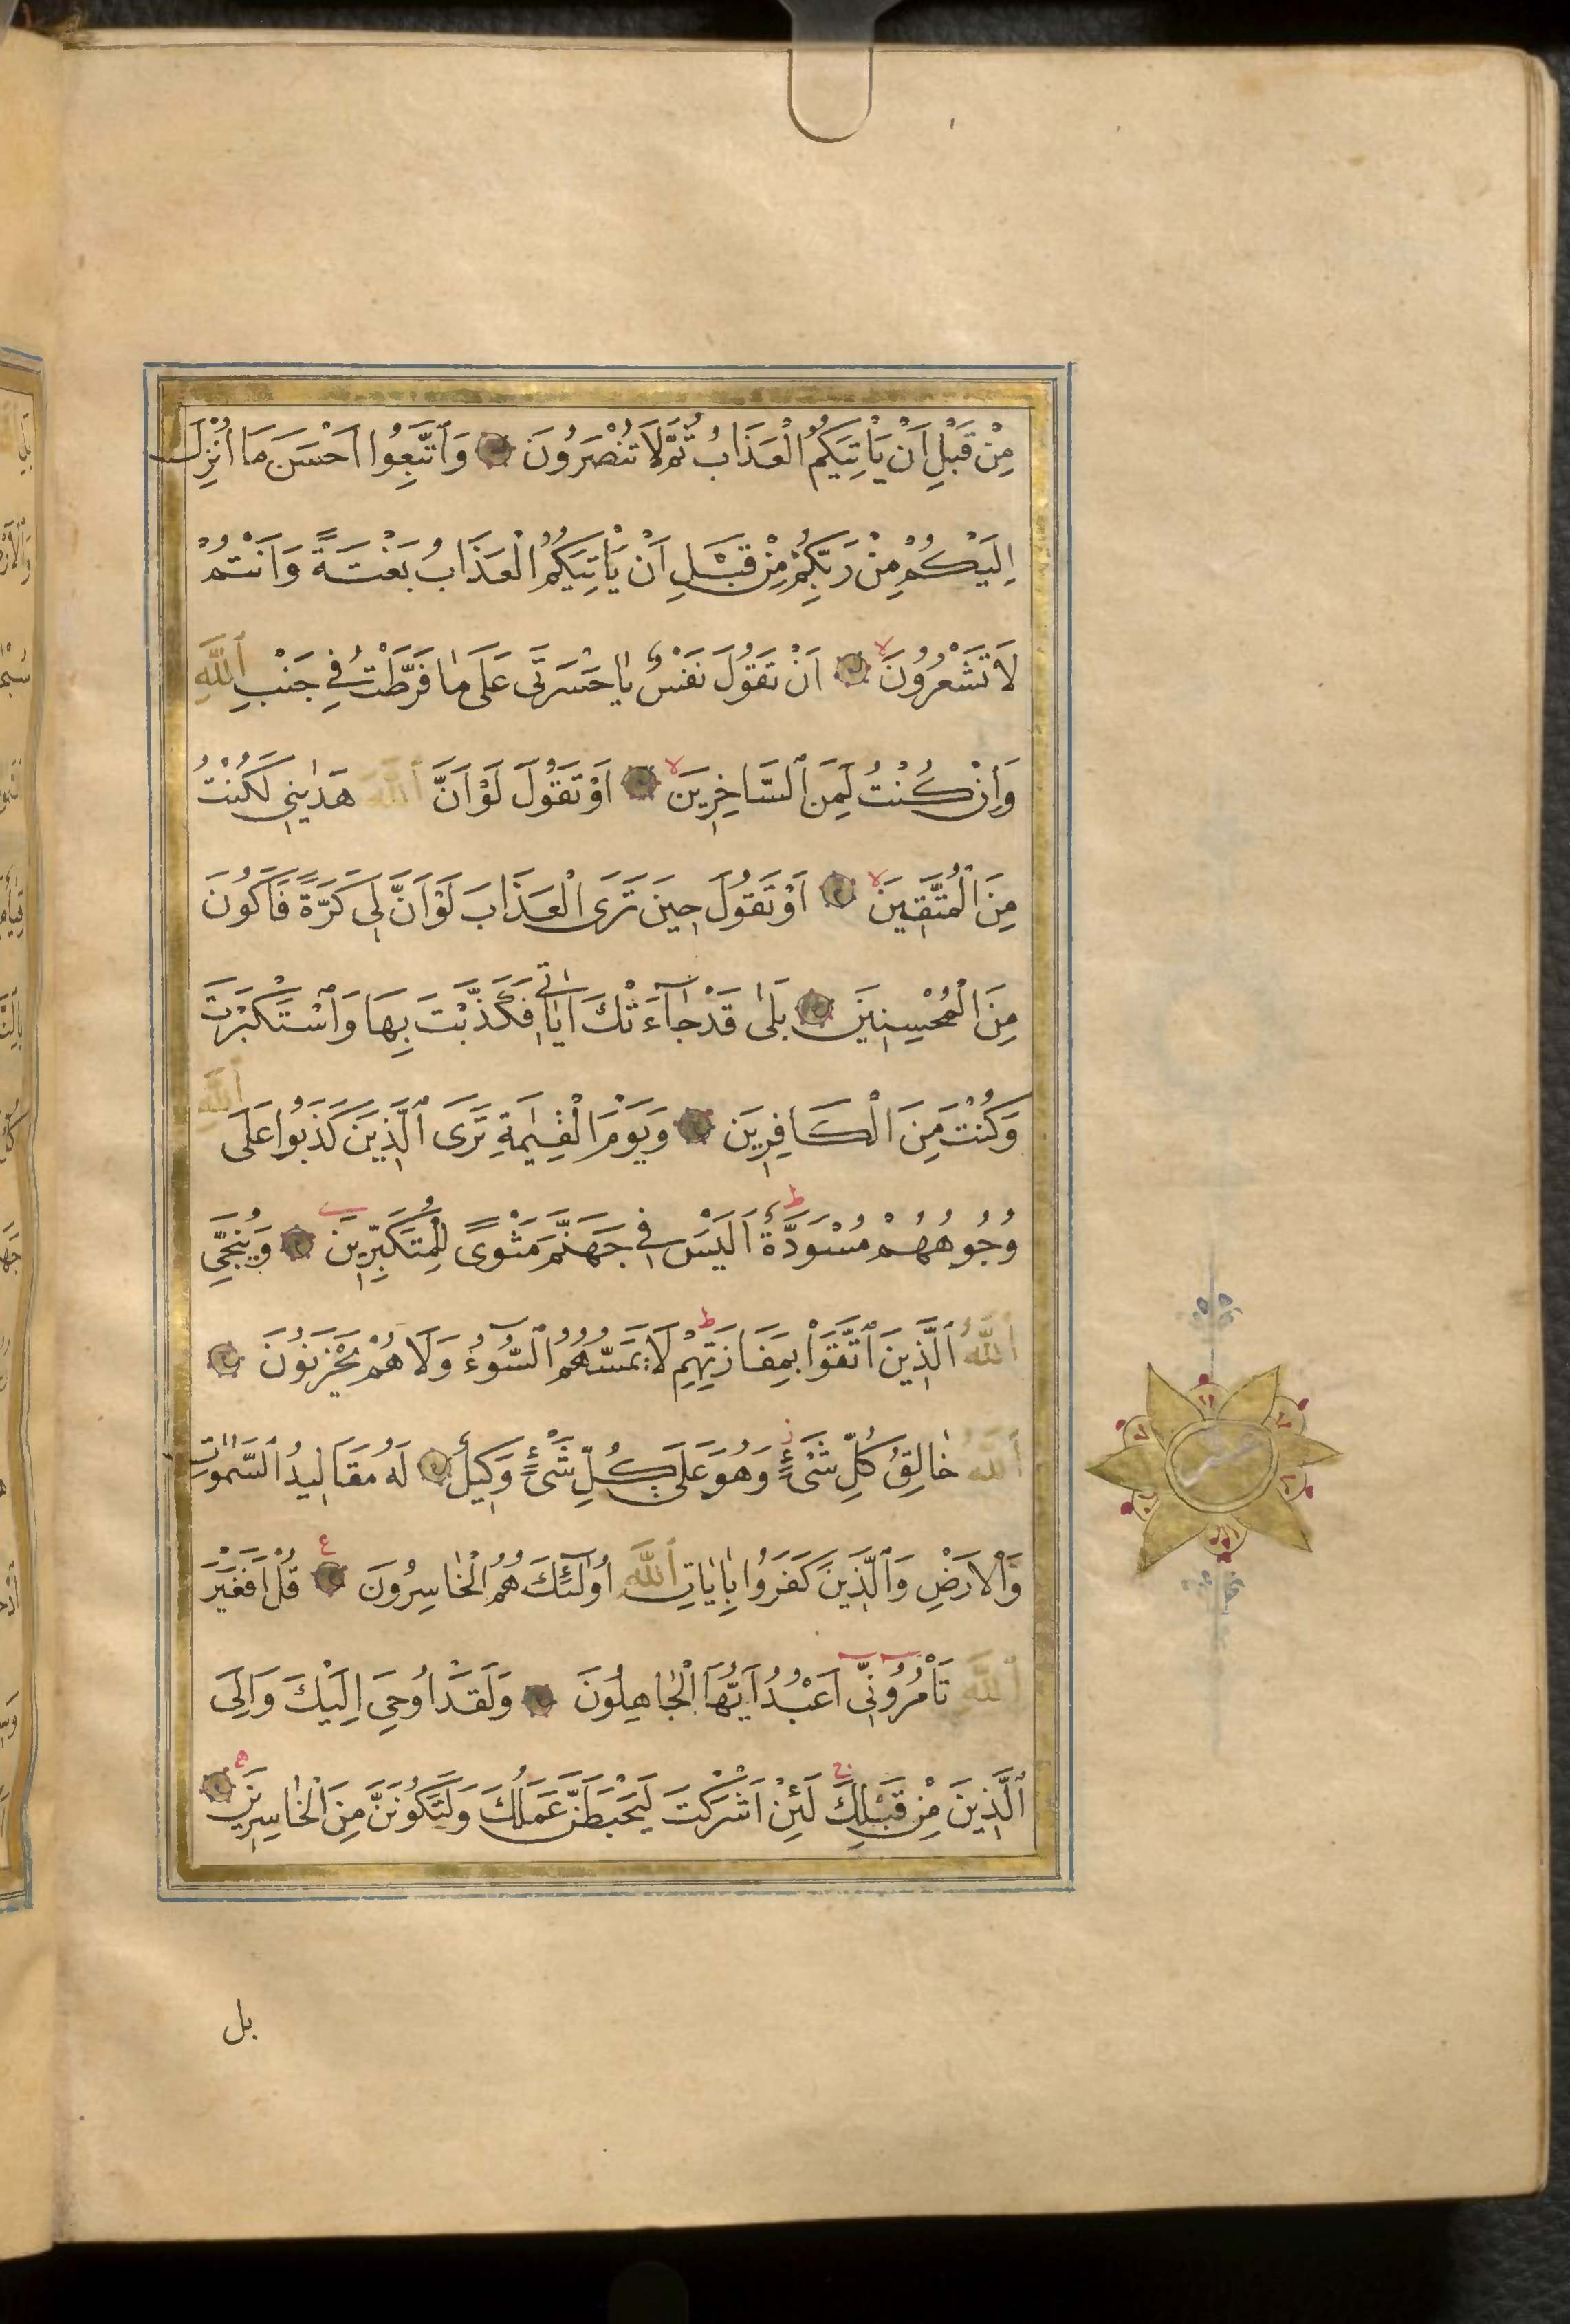 مِنْ قَبْلِ اَنْ يَاْتِيَكُمُ الْعَذَابُ ثُمَّ لَا تُنْصَرُونَ وَاتَّبِعُوا اَحْسَنَ مَا اُنْزِلَ
اِلَيْكُمْ مِنْ رَبِّكُمْ مِنْ قَبْلِ اَنْ يَاْتِيَكُمُ الْعَذَابُ بَغْتَةً وَاَنْتُمْ
لَا تَشْعُرُونَ اَنْ تَقُولَ نَفْسٌ يَا حَسْرَتٰى عَلٰى مَا فَرَّطْتُ فِي جَنْبِ اللّٰهِ
وَاِنْ كُنْتُ لَمِنَ السَّاخِرِينَ اَوْ تَقُولَ لَوْ اَنَّ اللّٰهَ هَدٰينِي لَكُنْتُ
مِنَ الْمُتَّقِينَ اَوْ تَقُولَ حِينَ تَرَى الْعَذَابَ لَوْ اَنَّ لِي كَرَّةً فَاَكُونَ
مِنَ الْمُحْسِنِينَ بَلٰى قَدْ جَآءَتْكَ اٰيَاتِي فَكَذَّبْتَ بِهَا وَاسْتَكْبَرْتَ
وَكُنْتَ مِنَ الْكَافِرِينَ وَيَوْمَ الْقِيٰمَةِ تَرَى الَّذِينَ كَذَبُوا عَلَى اللّٰهِ
وُجُوهُهُمْ مُسْوَدَّةٌ اَلَيْسَ فِي جَهَنَّمَ مَثْوًى لِلْمُتَكَبِّرِينَ وَيُنَجِّي
اللّٰهُ الَّذِينَ اتَّقَوْا بِمَفَازَتِهِمْ لَا يَمَسُّهُمُ السُّوءُ وَلَا هُمْ يَحْزَنُونَ
اللّٰهُ خَالِقُ كُلِّ شَيْءٍ وَهُوَ عَلٰى كُلِّ شَيْءٍ وَكِيلٌ لَهُ مَقَالِيدُ السَّمٰوَاتِ
وَالْاَرْضِ وَالَّذِينَ كَفَرُوا بِاٰيَاتِ اللّٰهِ اُولٰٓئِكَ هُمُ الْخَاسِرُونَ قُلْ اَفَغَيْرَ
اللّٰهِ تَاْمُرُونِّي اَعْبُدُ اَيُّهَا الْجَاهِلُونَ وَلَقَدْ اُوحِيَ اِلَيْكَ وَاِلَى
الَّذِينَ مِنْ قَبْلِكَ لَئِنْ اَشْرَكْتَ لَيَحْبَطَنَّ عَمَلُكَ وَلَتَكُونَنَّ مِنَ الْخَاسِرِينَ
بل